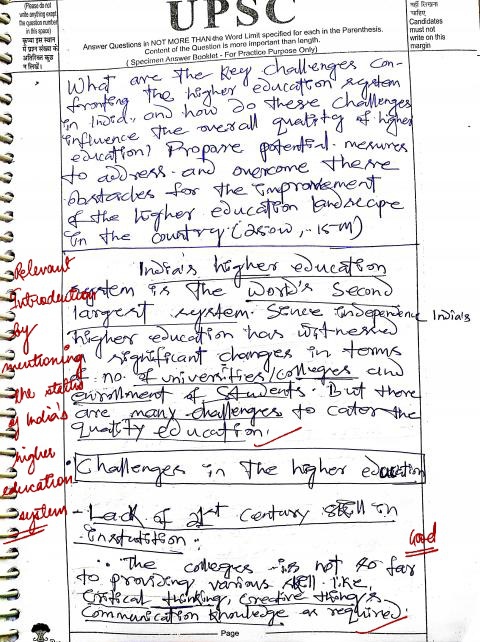 (Please do not
write anything except
the question number
in this space)
कृपया इस स्थान
में प्रश्न संख्या के
अतिरिक्त कुछ
न लिखें।
UPSC
Answer Questions in NOT MORE THAN the Word Limit specified for each in the Parenthesis.
Content of the Question is more important than length.
( Specimen Answer Booklet - For Practice Purpose Only )
नहीं लिखना
चाहिए
Candidates
must not
write on this
margin
What are the key challenges con-
fronting the higher education system
in India, and how do these challenges
influence the overall quality of higher
education? Propose potential mesures
to address and overcome these
obstacles for the improvement
of the higher education landscape
in the country (250w, 15M)
India's higher education
system is the world's second
largest system. Since independence India's
higher education has witnessed
significant changes in terms
of no. of universities/colleges and
enrollment of students. But there
are many challenges to cator the
quality education.
Relevant
Introduction
by
mentioning
the status
of India's
higher
education
system
Challenges in the higher education
- Lack of 21st century skill in
institution:
The colleges is not so far
to providing various skill like,
critical thinking, creative things
communication knowledge as required.
Good
Page